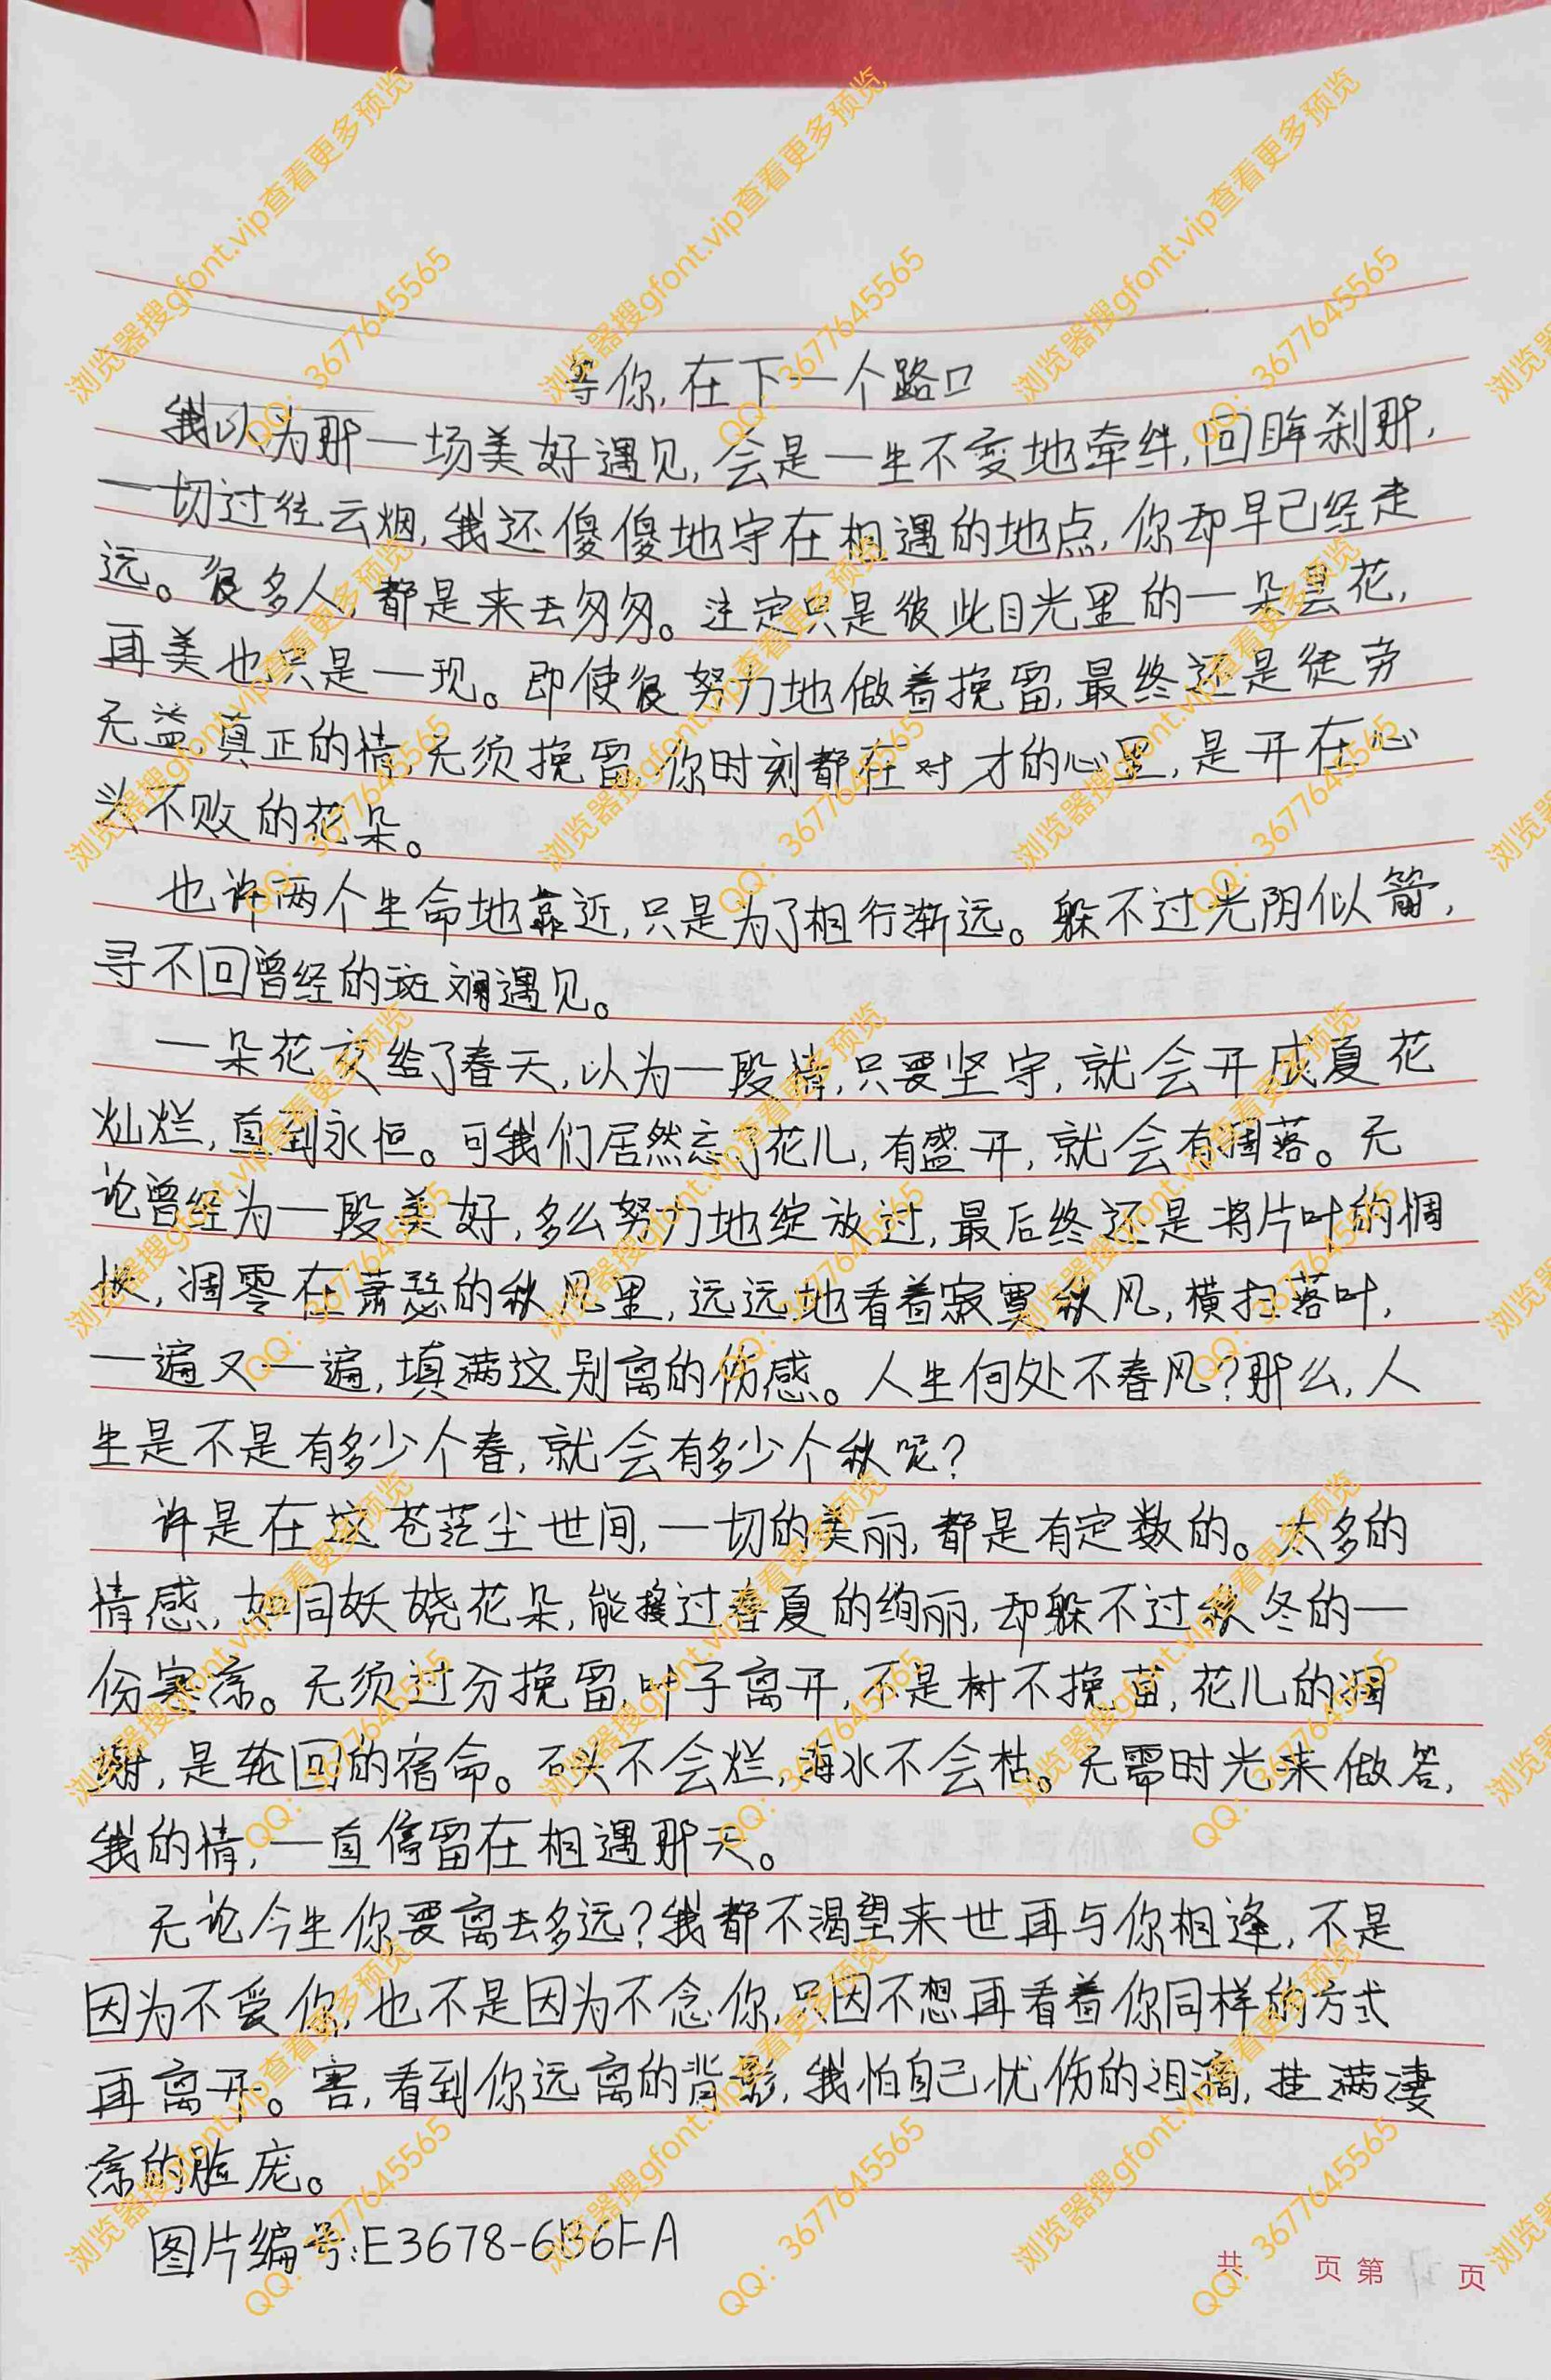 等你,在下一个路口
我以为那一场美好遇见,会是一生不变地牵绊,回眸刹那,
一切过往云烟,我还傻傻地守在相遇的地点,你却早已经走
远。很多人,都是来去匆匆。注定只是彼此目光里的一朵昙花,
再美也只是一现。即使很努力地做着挽留,最终还是徒劳
无益 真正的情,无须挽留,你时刻都在对才的心里,是开在心
头不败的花朵。
也许两个生命地靠近,只是为了相行渐远。躲不过光阴似箭,
寻不回曾经的斑斓遇见。
一朵花交给了春天,以为一段情,只要坚守,就会开成夏花
灿烂,直到永恒。可我们居然忘了花儿,有盛开,就会有凋落。无
论曾经为一段美好,多么努力地绽放过,最后终还是将片叶的惆
怅,凋零在萧瑟的秋风里,远远地看着寂寞秋风,横扫落叶,
一遍又一遍,填满这别离的伤感。人生何处不春风?那么,人
生是不是有多少个春,就会有多少个秋呢?
许是在这苍茫尘世间,一切的美丽,都是有定数的。太多的
情感,如同妖娆花朵,能接过春夏的绚丽,却躲不过秋冬的一
份寒凉。无须过分挽留,叶子离开,不是树不挽留,花儿的凋
谢,是轮回的宿命。石头不会烂,海水不会枯。无需时光来做答,
我的情,一直停留在相遇那天。
无论今生你要离去多远?我都不渴望来世再与你相逢,不是
因为不爱你,也不是因为不念你,只因不想再看着你同样的方式
再离开。害,看到你远离的背影,我怕自己忧伤的泪滴,挂满凄
凉的脸庞。
图片编号:E3678-6B6FA
共 页 第 页
浏览器搜gfont.vip查看更多预览
QQ: 3677645565